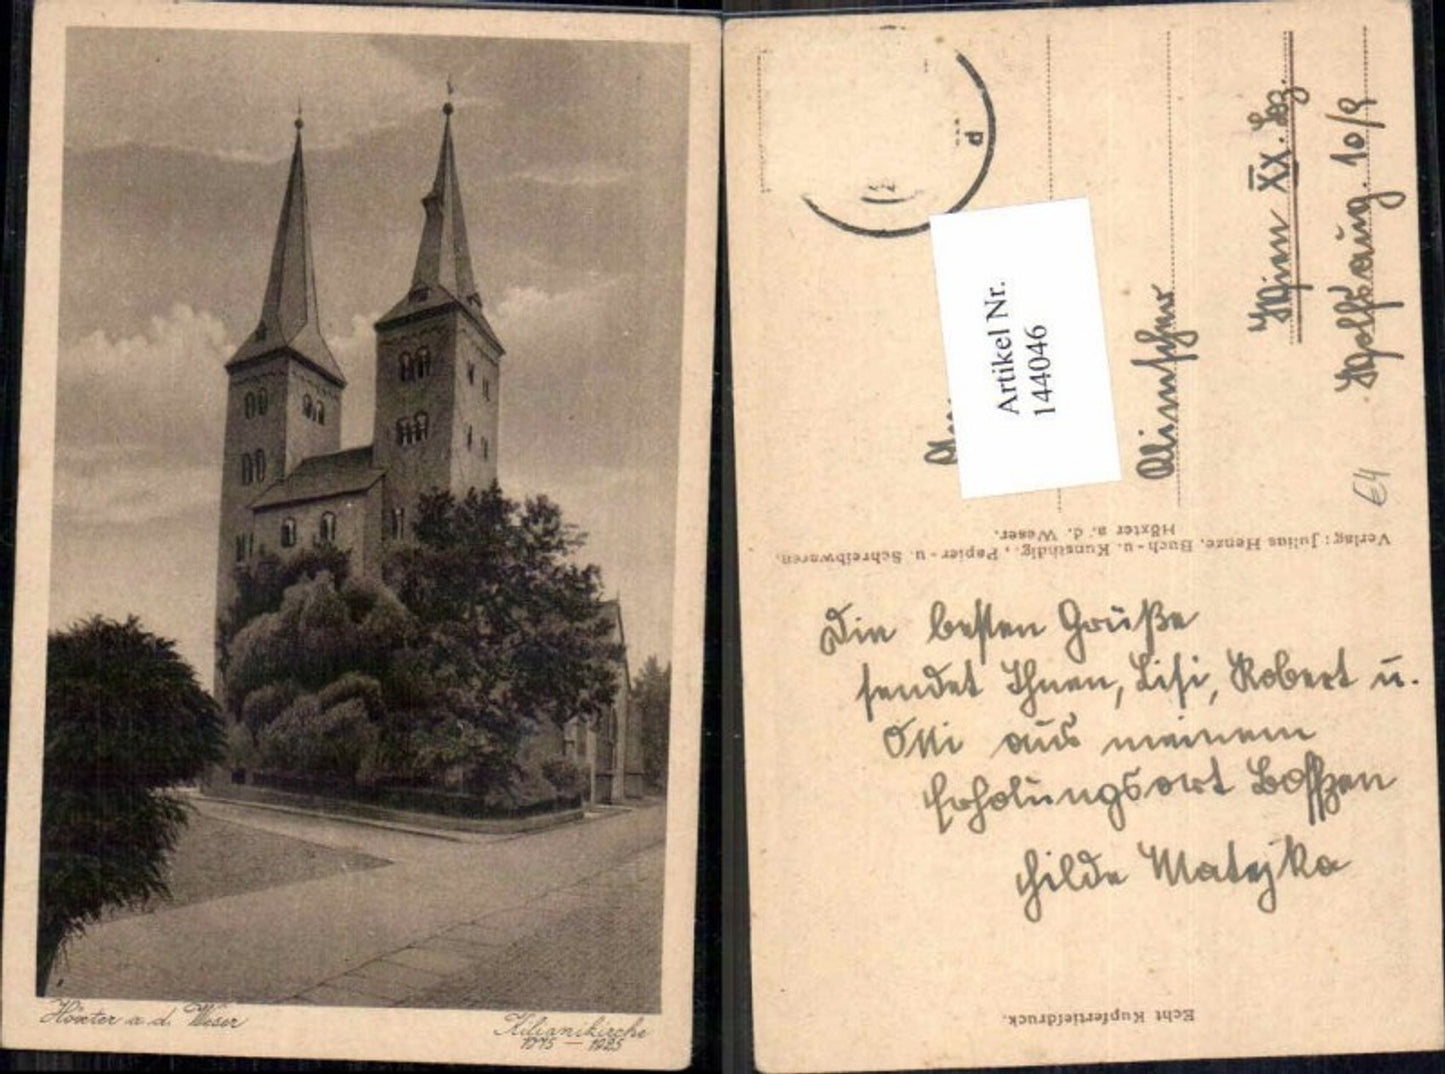 Höxter a. d. Weser
Kilianikirche
1075 — 1925
d
Artikel Nr.
144046
Wien XX. Bz.
10/9
E4
Verlag: Julius Henze, Buch- u. Kunsthdlg., Papier- u. Schreibwaren,
Höxter a. d. Weser.
Die besten Grüße
sendet Ihnen, Lisi, Robert u.
Otti aus meinem
Erholungsort Boffzen
Hilde Matejka
Echt Kupfertiefdruck.